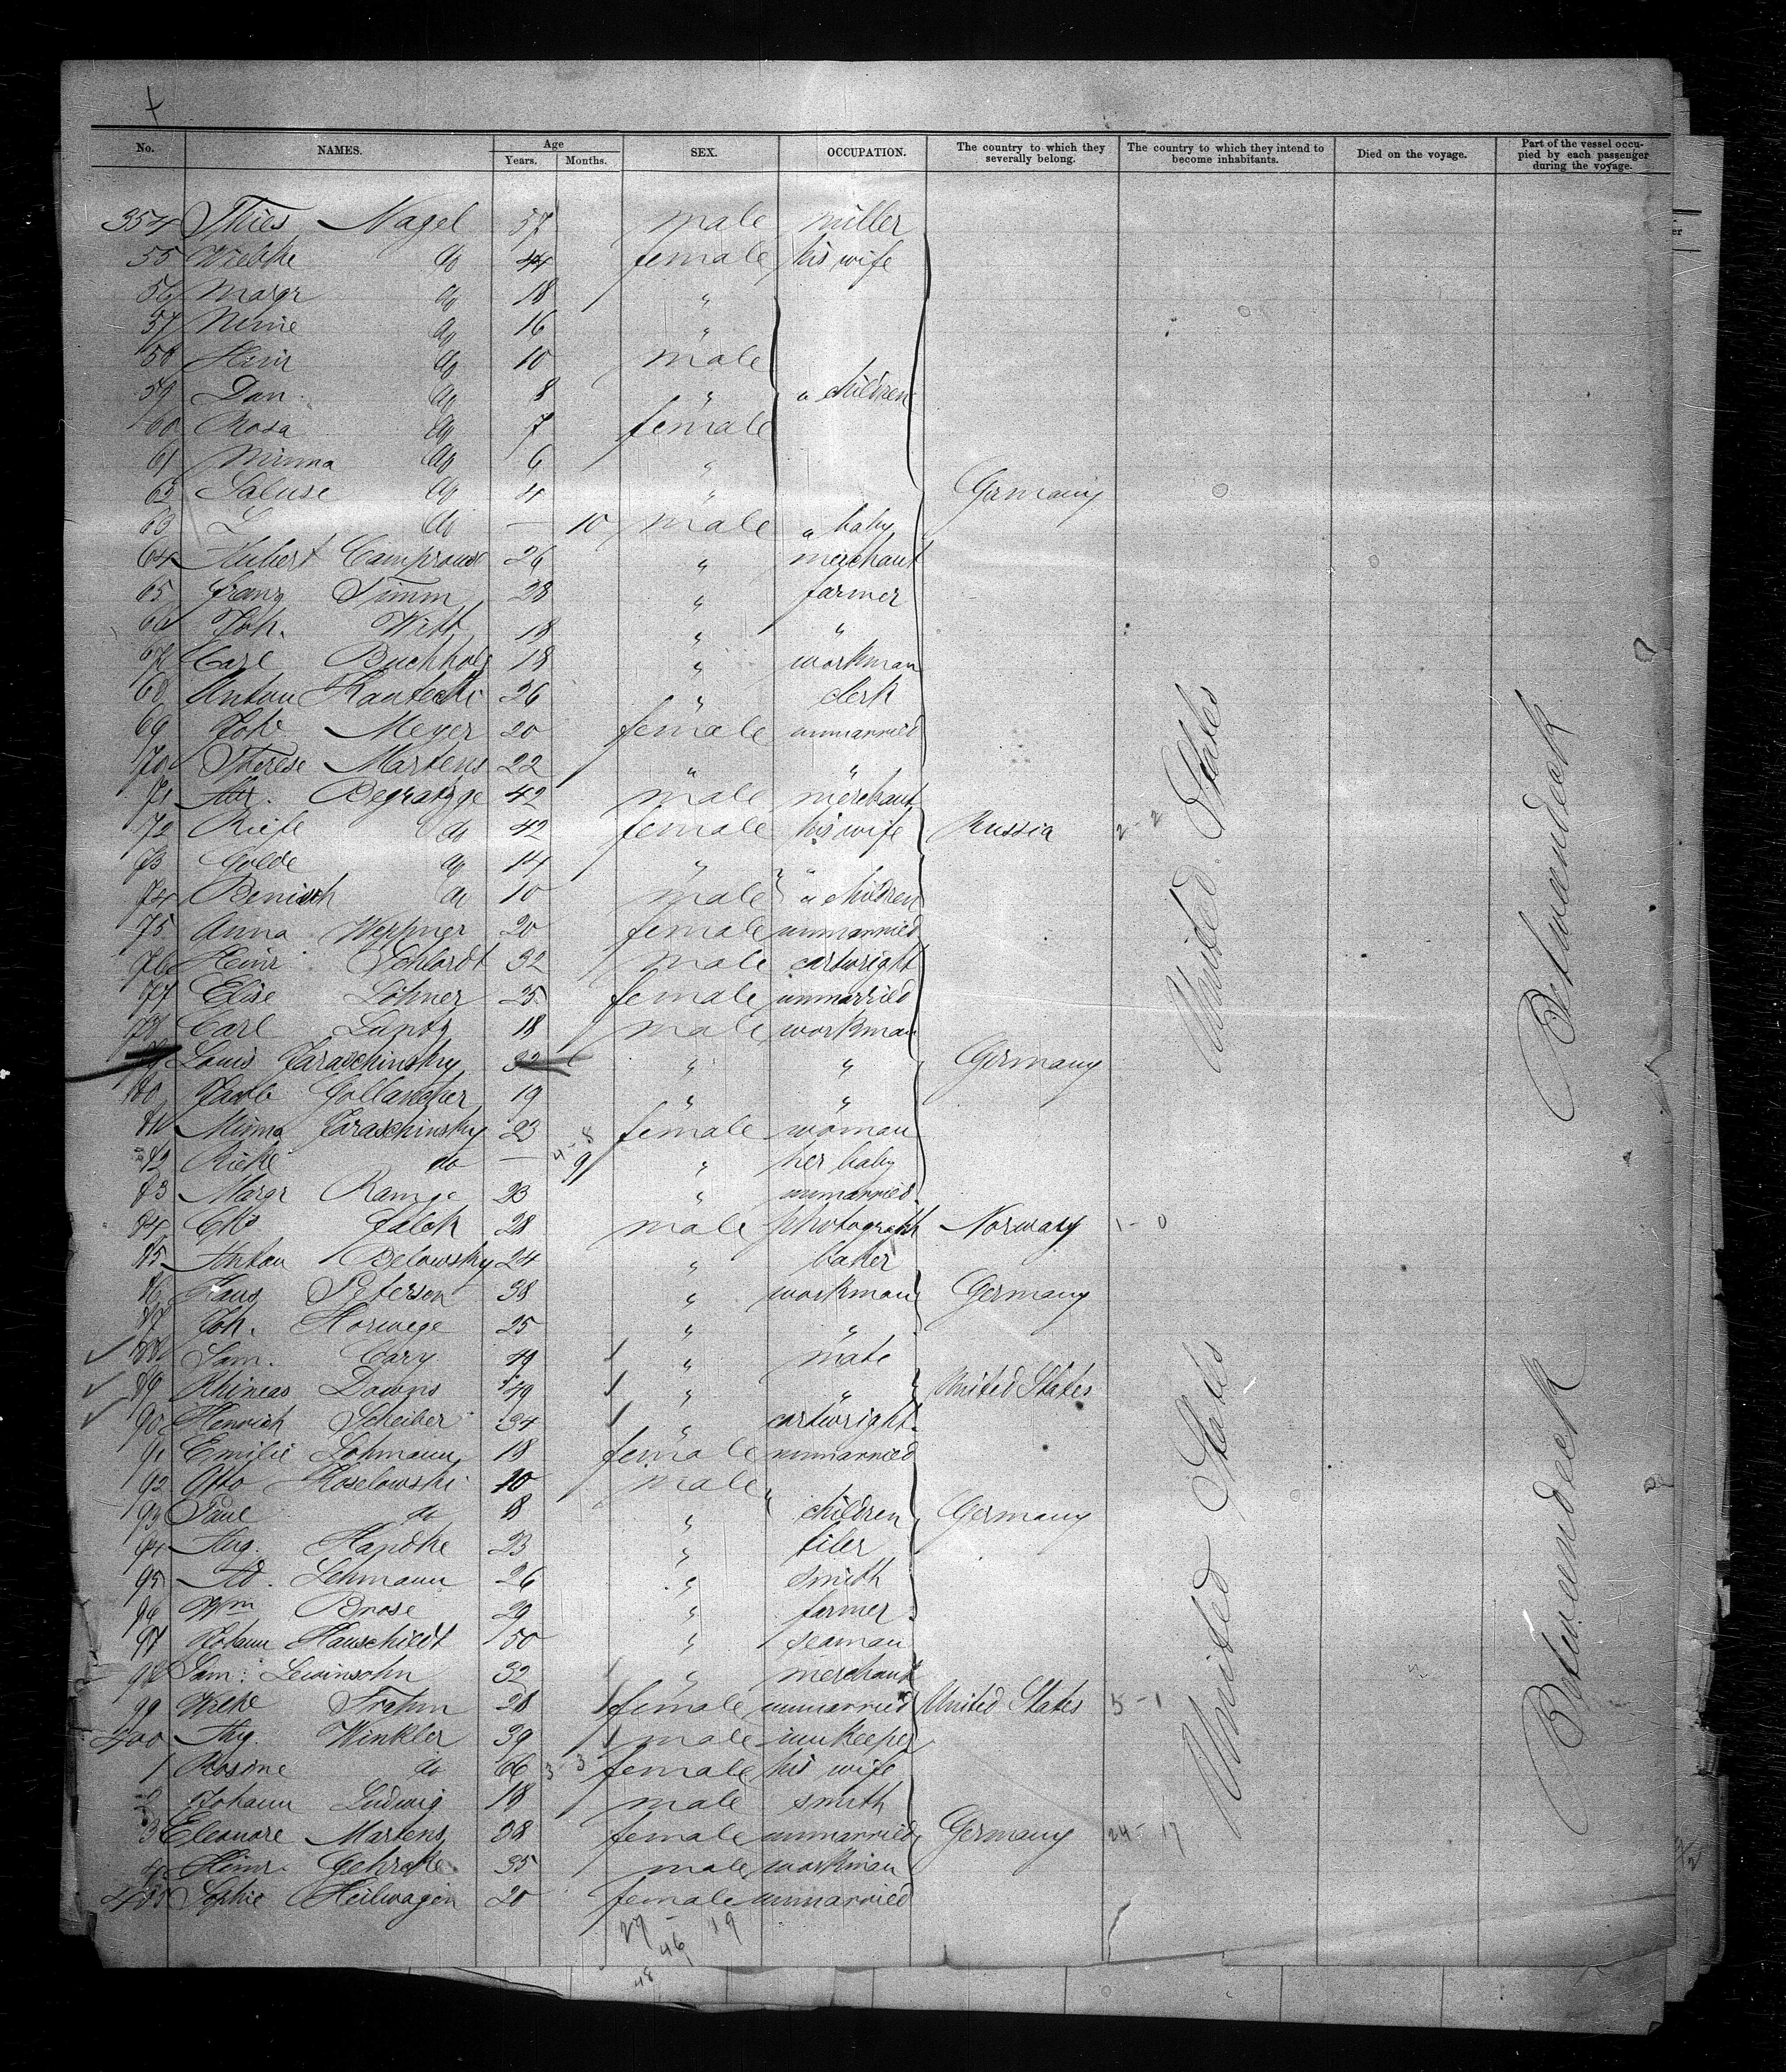 No. NAMES. Age Years. Months. SEX. OCCUPATION. The country to which they severally belong. The country to which they intend to become inhabitants. Died on the voyage. Part of the vessel occupied by each passenger during the voyage.
354 Thies Nagel 57 male miller
55 Wiebke do 44 female his wife
56 Margr do 18 "
57 do 16 "
58 Heinr do 10 male
59 Dan. do 8 " " children
60 Rosa do 7 female
61 Minna do 6 "
62 do 4 " Germany
63 L do — 10 male " baby
64 Hubert 26 " merchant
65 Franz Timm 28 " farmer
66 Joh. Witt 18 " "
67 Carl Buchholz 18 " workman
68 Anton 26 " clerk
69 Meyer 20 female unmarried
70 Therese Martens 22 " "
71 42 male merchant
72 do 42 female his wife Russia 2-2
73 Golde do 14 "
74 do 10 male " children
75 Anna 20 female unmarried
76 Heinr 32 male cartwright
77 Elise Löhner 25 female unmarried
78 Carl 18 male workman
79 Louis Jaraschinsky 32 " " Germany
80 Jacob 19 " "
81 Minna Jaraschinsky 23 female woman
82 Rieke do — 9 " her baby
83 Margr Ramge 23 " unmarried
84 Falck 28 male photograph Norway 1-0
85 Anton Belowsky 24 " baker
86 Hans Peterson 38 " workman Germany
87 Joh. Horwege 25 " "
88 Sam. Cary 49 " mate
89 Phineas Downs 49 " " United States
90 Henrich Scheiber 34 " cartwright
91 Emilie Lohmann 18 female unmarried
92 Otto Koselowski 10 male
93 Paul do 8 " children Germany
94 Aug. Handke 23 " tiler
95 Ad. Lehmann 26 " smith
96 Wm Brose 29 " farmer
97 Johann Hauschiedt 50 " seaman
98 Sam. Lewinsohn 32 " merchant
99 Frahm 28 female unmarried United States 5-1
400 Aug. Winkler 39 male innkeeper
1 Rosine do 66 female his wife
2 Johann Ludwig 18 male smith
3 Eleonore Martens 38 female unmarried Germany 24-17
4 Heinr. Gehrcke 35 male workman
405 Sophie Heilwagen 20 female unmarried
27 - 19
46
48
United States
United States
Betweendeck
Betweendeck